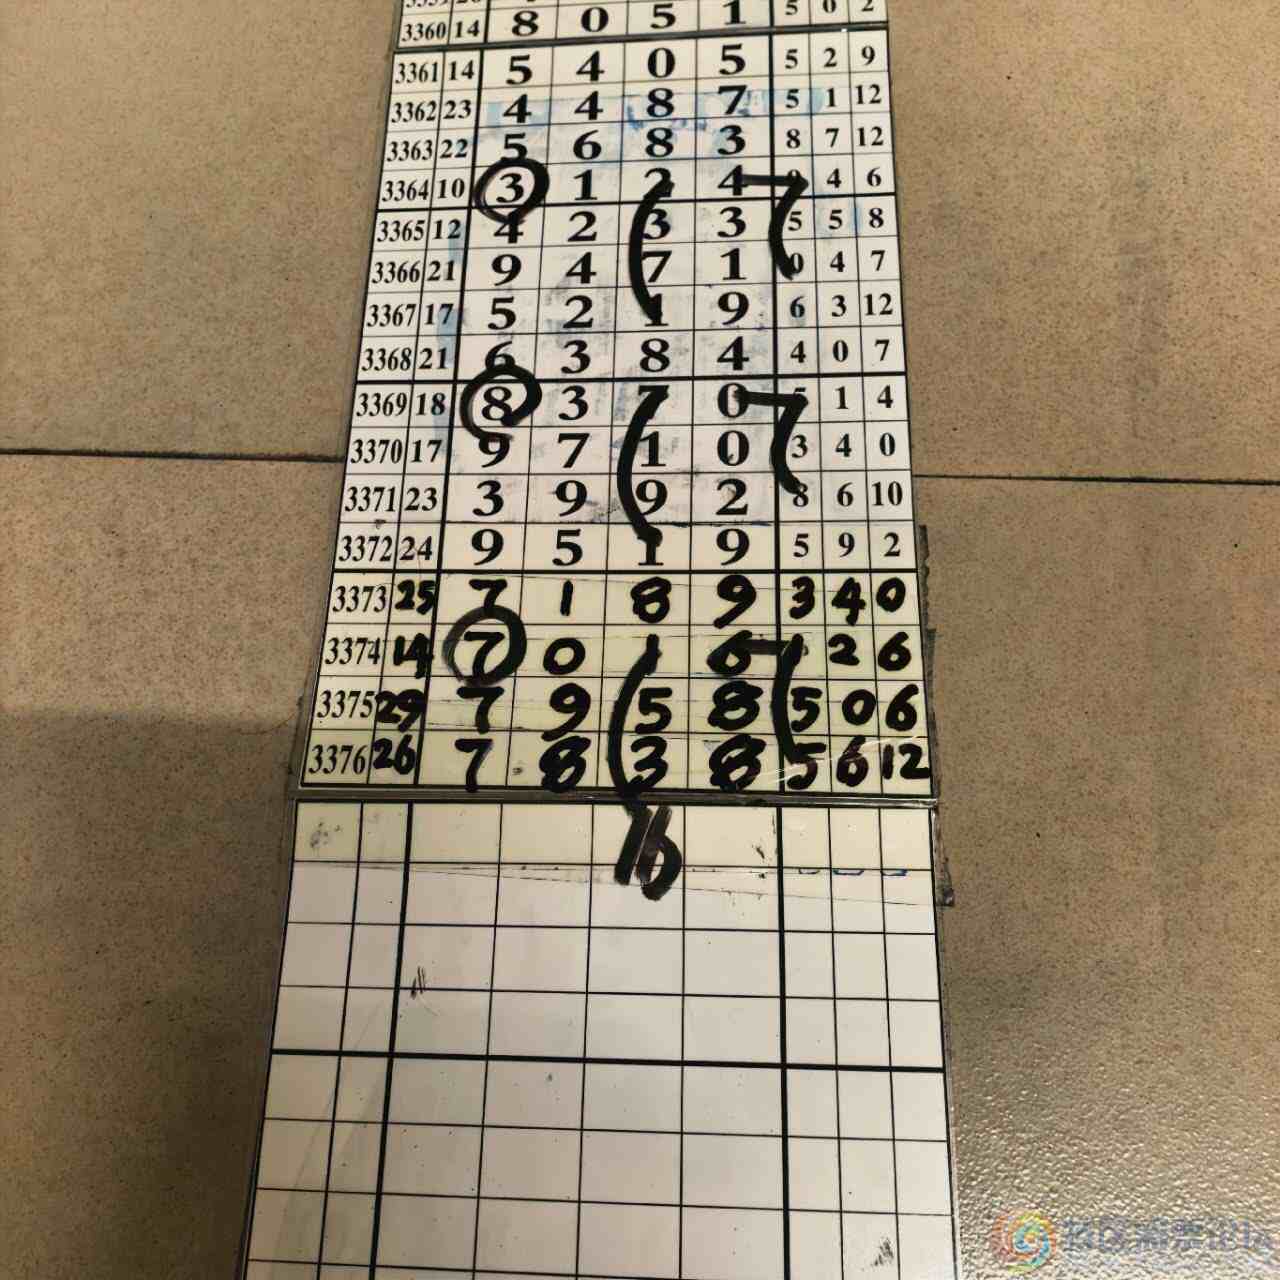 3360 14 8 0 5 1 5 0 2
3361 14 5 4 0 5 5 2 9
3362 23 4 4 8 7 5 1 12
3363 22 5 6 8 3 8 7 12
3364 10 3 1 2 4 4 6
3365 12 4 2 3 3 5 5 8
3366 21 9 4 7 1 0 4 7
3367 17 5 2 1 9 6 3 12
3368 21 6 3 8 4 4 0 7
3369 18 8 3 7 0 5 1 4
3370 17 9 7 1 0 3 4 0
3371 23 3 9 9 2 8 6 10
3372 24 9 5 1 9 5 9 2
3373 25 7 1 8 9 3 4 0
3374 14 7 0 1 6 1 2 6
3375 29 7 9 5 8 5 0 6
3376 26 7 8 3 8 5 6 12
16